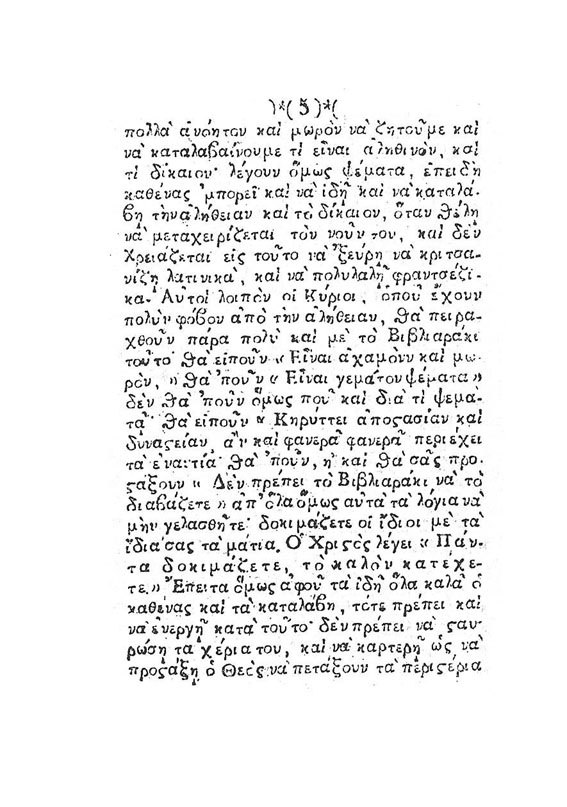 )*( 5 )*(
πολλὰ ἀνόητον καὶ μωρὸν νὰ ζητοῦμε καὶ
νὰ καταλαβαίνουμε τὶ εἶναι ἀληθινὸν, καὶ
τὶ δίκαιον· λέγουν ὅμως ψέματα, ἐπειδὴ
καθένας ᾿μπορεῖ καὶ νὰ ἰδῆ καὶ νὰ καταλά-
βη τὴν ἀλήθειαν καὶ τὸ δίκαιον, ὅταν θέλη
νὰ μεταχειρίζεται τὸν νοῦν του, καὶ δὲν
χρειάζεται εἰς τοῦτο νὰ ᾿ξεύρη νὰ κριτσα-
νίζη λατινικὰ, καὶ νὰ πολυλαλῆ φραντσέζι-
κα. Αὐτοὶ λοιπὸν οἱ Κύριοι, ὁποῦ ἔχουν
πολὺν φόβον ἀπὸ τὴν ἀλήθειαν, θὰ πειρα-
χθοῦν πάρα πολὺ καὶ μὲ τὸ Βιβλιαράκι
τοῦτο· θὰ εἰποῦν « Εἶναι ἀχαμνὸν καὶ μω-
ρὸν, » θὰ ᾿ποῦν « Εἶναι γεμάτον ψέματα »
δὲν θὰ ᾿ποῦν ὅμως ποῦ καὶ διατὶ ψεμα-
τα· θὰ εἰποῦν « Κηρύττει ἀποϛασίαν καὶ
δυναϛείαν, ἂν καὶ φανερὰ φανερὰ περιέχει
τὰ ἐναντία· θὰ ᾿ποῦν, ἢ καὶ θὰ σᾶς προ-
ϛάξουν « Δὲν πρέπει τὸ Βιβλιαράκι νὰ τὸ
διαβάζετε » ἀπ᾿ ὅλα ὅμως αὐτὰ τὰ λόγια νὰ
μὴν γελασθῆτε· δοκιμάζετε οἱ ἴδιοι μὲ τὰ
ἴδια σας τὰ μάτια. Ὁ Χριϛὸς λέγει « Πάν-
τα δοκιμάζετε, τὸ καλὸν κατέχε-
τε. » Ἔπειτα ὅμως ἀφοῦ τὰ ἰδῆ ὅλα καλὰ ὁ
καθένας καὶ τὰ καταλάβη, τότε πρέπει καὶ
νὰ ἐνεργῆ κατὰ τοῦτο· δὲν πρέπει νὰ ϛαυ-
ρώση τὰ χέρια του, καὶ νὰ καρτερῆ ὡς νὰ
προϛάξη ὁ Θεὸς νὰ πετάξουν τὰ περιϛέρια